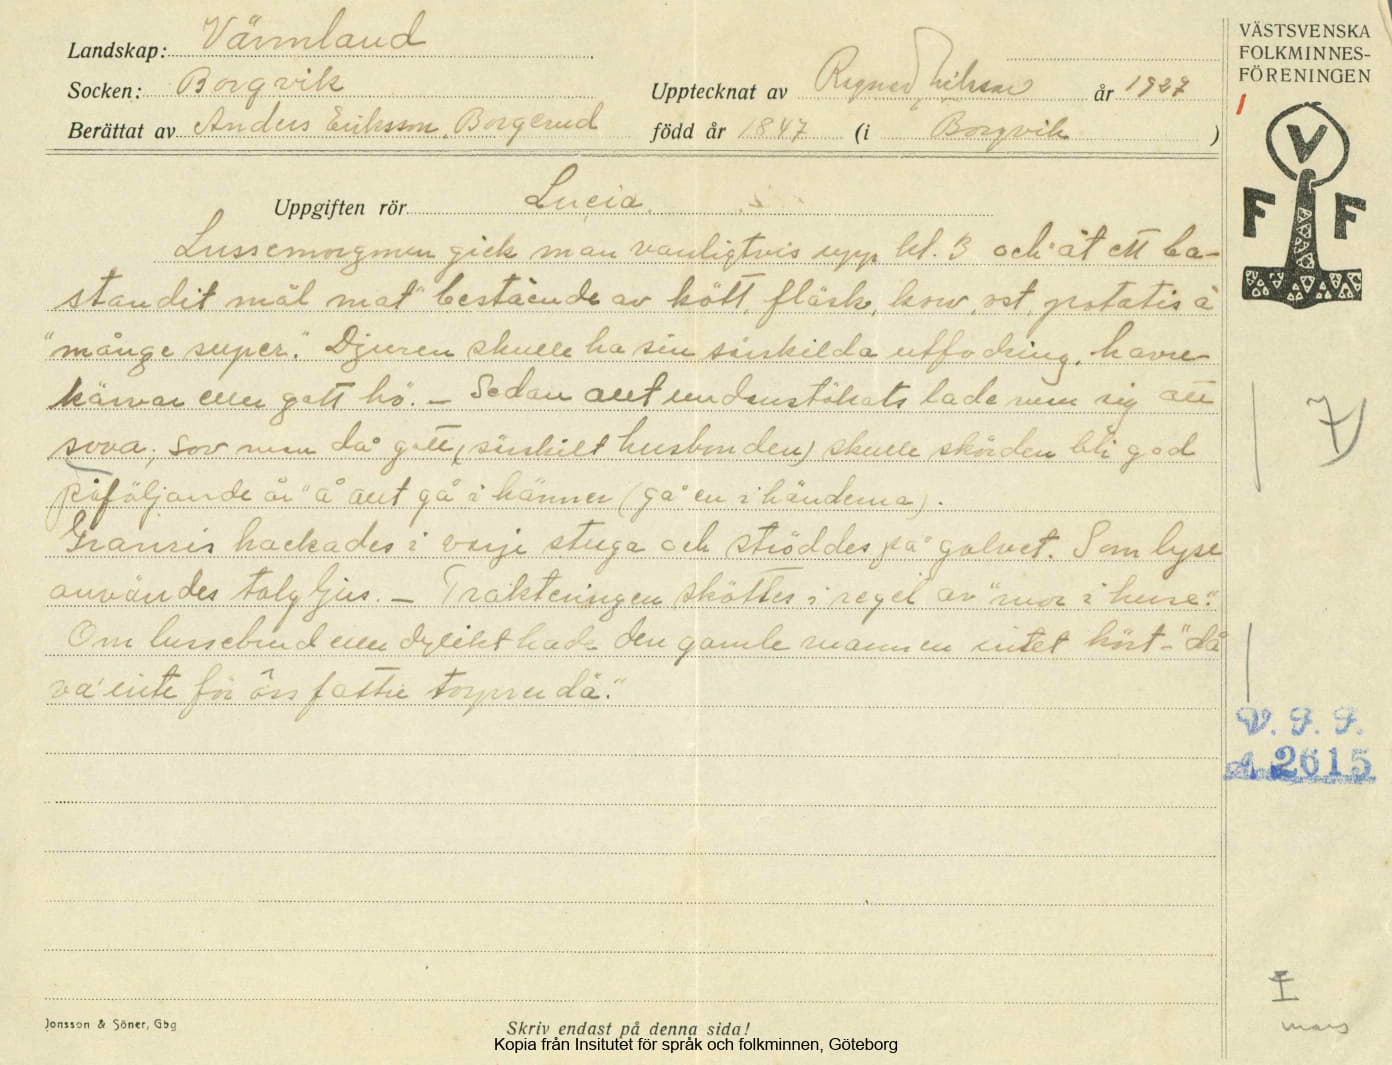 Landskap: Värmland
Socken: Borgvik
Upptecknat av Ragnar Nilsson år 1927
Berättat av Anders Eriksson, Borgerud
född år 1847 (i Borgvik )
Uppgiften rör Lucia.
Lussemorgonen gick man vanligtvis upp kl. 3 och "åt ett ba-
standit mål mat" bestående av kött, fläsk, korv, ost, potatis å
"många super." Djuren skulle ha sin särskilda utfodring, havre-
kärvar eller gott hö. – Sedan allt undanstökats lade man sig att
sova; sov man då gott (särskilt husbonden) skulle skörden bli god
påföljande år "å allt gå i hänner (gå en i händerna).
Granris hackades i varje stuga och ströddes på golvet. Som lyse
användes talgljus. – Trakteringen sköttes i regel av "mor i huse".
Om lussebrud eller dylikt hade den gamle mannen intet hört – "då
va' inte för öss fattie torpren dä."
VÄSTSVENSKA
FOLKMINNES-
FÖRENINGEN
V
F F
7
V. F. F.
A 2615
I
mars
Jonsson & Söner, Gbg
Skriv endast på denna sida!
Kopia från Insitutet för språk och folkminnen, Göteborg